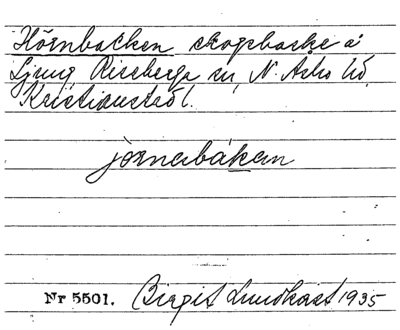 Hörnbacken skogsbacke å
Ljung Riseberga sn, N. Åsbo hd,
Kristianstad l.
jörnabákan
Nr 5501. Birgit Lundkvist 1935